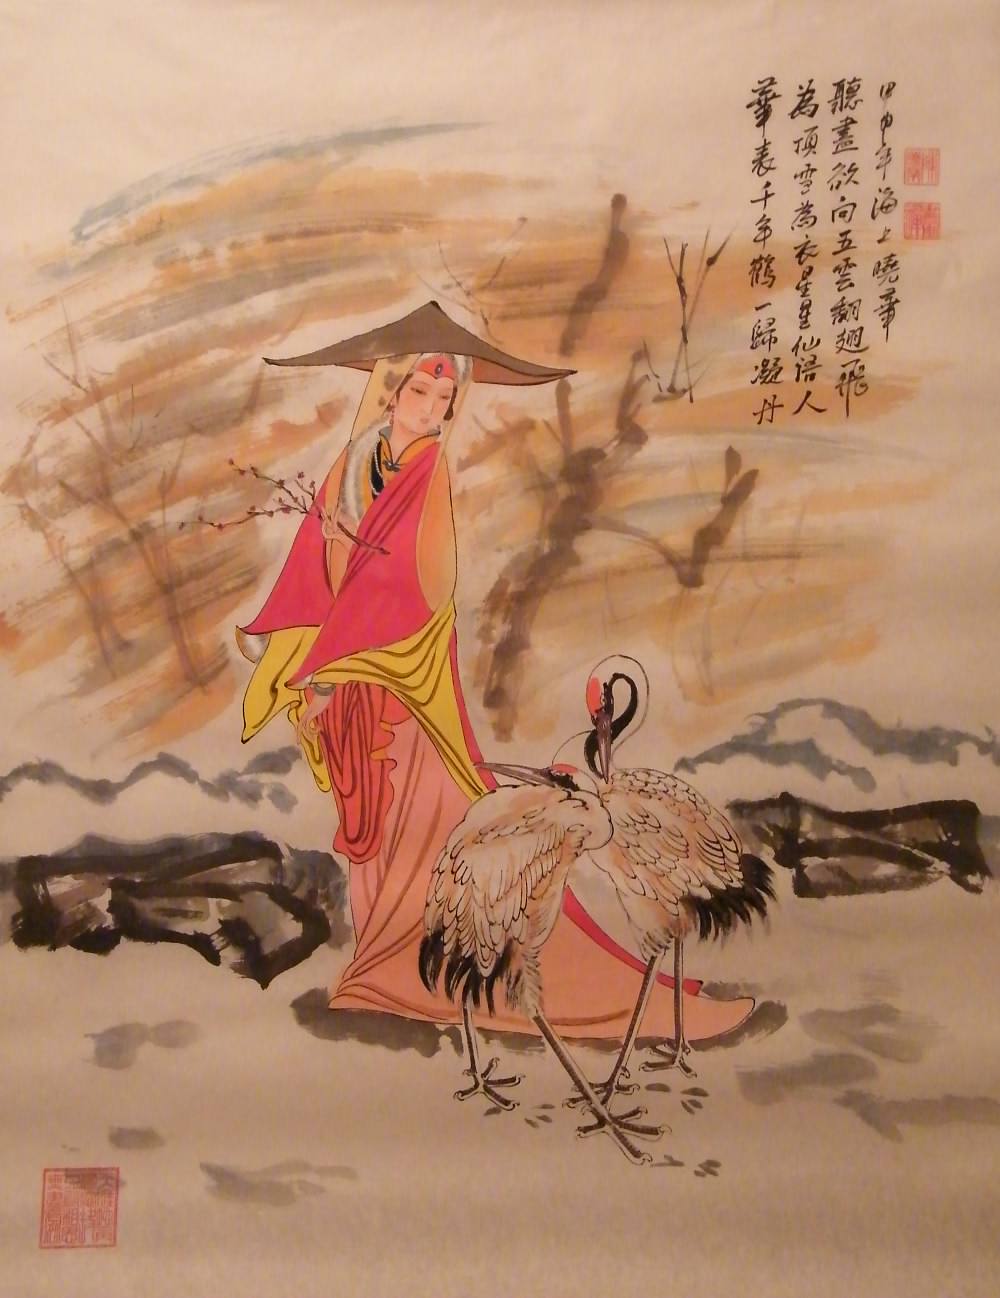 華表千年鶴一歸凝丹
為頂雪為衣星星仙語人
聽盡欲向五雲翻翅飛
甲申年海上曉華